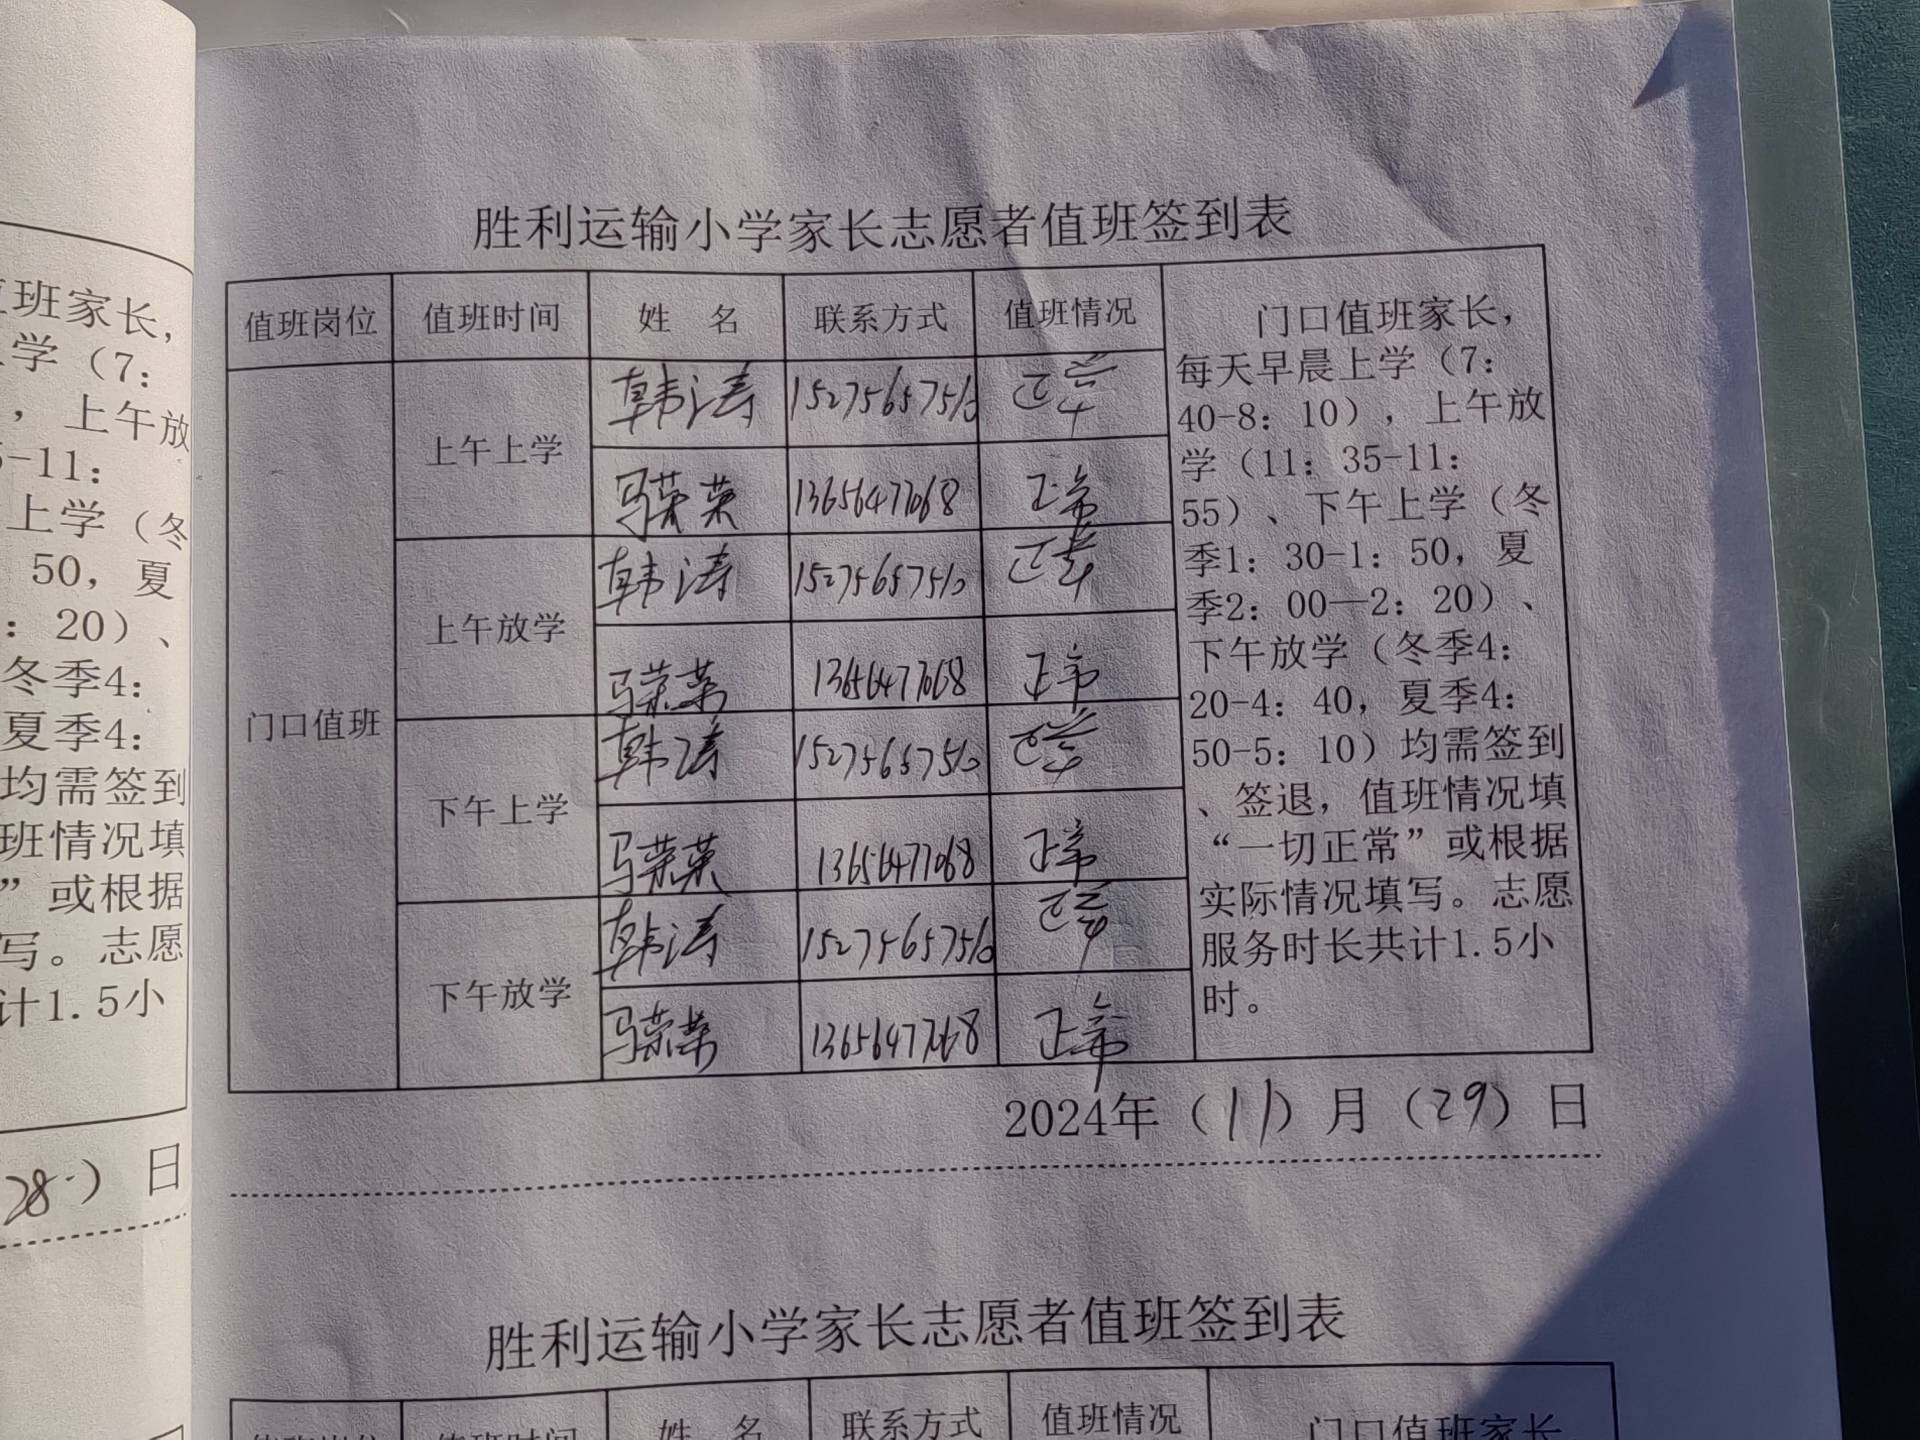 胜利运输小学家长志愿者值班签到表
值班岗位 值班时间 姓 名 联系方式 值班情况
门口值班
上午上学 韩涛 15275657510 正常
马荣荣 13656477068 正常
上午放学 韩涛 15275657510 正常
马荣荣 13656477068 正常
下午上学 韩涛 15275657510 正常
马荣荣 13656477068 正常
下午放学 韩涛 15275657510 正常
马荣荣 13656477068 正常
门口值班家长,
每天早晨上学(7:
40-8:10),上午放
学(11:35-11:
55)、下午上学(冬
季1:30-1:50,夏
季2:00—2:20)、
下午放学(冬季4:
20-4:40,夏季4:
50-5:10)均需签到
、签退,值班情况填
“一切正常”或根据
实际情况填写。志愿
服务时长共计1.5小
时。
2024年(11)月(29)日
胜利运输小学家长志愿者值班签到表
值班岗位 值班时间 姓 名 联系方式 值班情况 门口值班家长
班家长,
学(7:
,上午放
-11:
上学(冬
50,夏
:20)、
冬季4:
夏季4:
均需签到
班情况填
”或根据
写。志愿
计1.5小
28)日